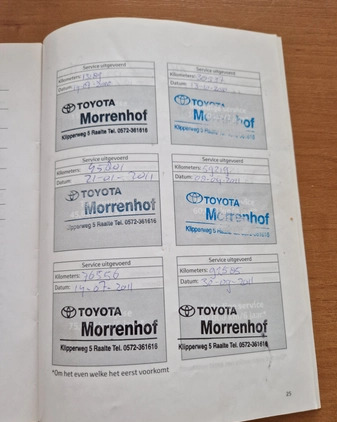 Service uitgevoerd
Kilometers:
Datum:
TOYOTA
Morrenhof
Klipperweg 5 Raalte Tel. 0572-361616
Service uitgevoerd
Kilometers:
Datum:
TOYOTA
Morrenhof
Klipperweg 5 Raalte Tel. 0572-361616
Service uitgevoerd
Kilometers:
Datum: 21-01-2011
TOYOTA
Morrenhof
Klipperweg 5 Raalte Tel. 0572-361616
Service uitgevoerd
Kilometers:
Datum:
TOYOTA
Morrenhof
Klipperweg 5 Raalte Tel. 0572-361616
Service uitgevoerd
Kilometers: 76556
Datum: 14-07-2011
TOYOTA
Morrenhof
Klipperweg 5 Raalte Tel. 0572-361616
Service uitgevoerd
Kilometers: 92585
Datum:
TOYOTA
Morrenhof
Klipperweg 5 Raalte Tel. 0572-361616
*Om het even welke het eerst voorkomt
25